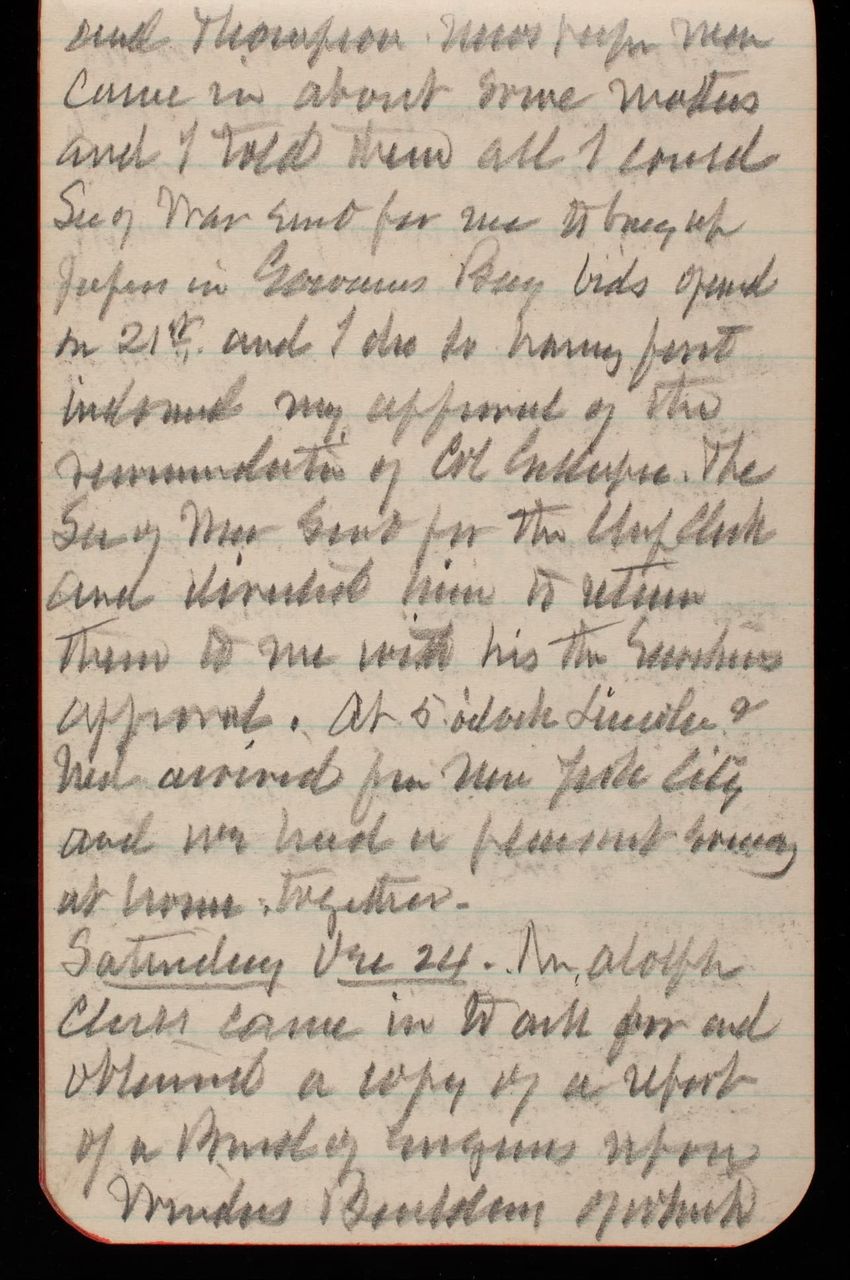 and Thompson news paper men
came in about some matters
and I told them all I could
Sec of War sent for me to bring up
papers in Gowanus Bay bids opened
on 21st. and I did so having first
indorsed my approval of the
recommendation of Col Gillespie. The
Sec of War sent for the Chief Clerk
and directed him to return
them to me with his the Secretarys
approval. At 5 o'clock Lincoln &
Ned arrived from New York City
and we had a pleasant evening
at home together-
Saturday Dec 24-. Mr. Adolph
Cluss came in to ask for and
obtained a copy of a report
of a Board of Engineers upon
Boulder of which